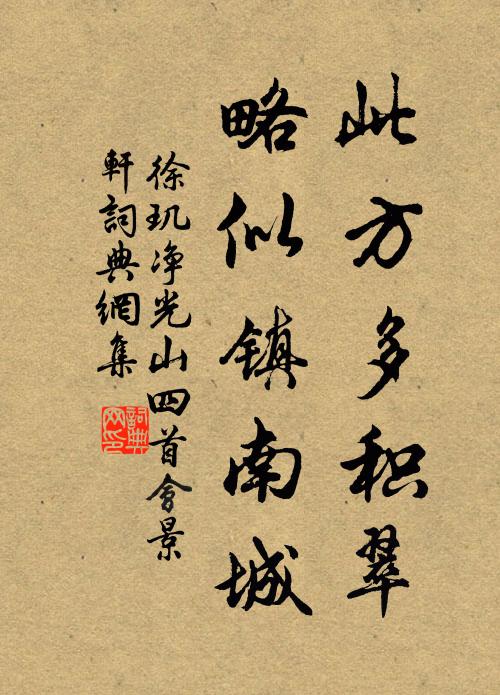 此方多积翠
略似镇南城
徐玑净光山四首會景
軒詞典網集
詞典
网印